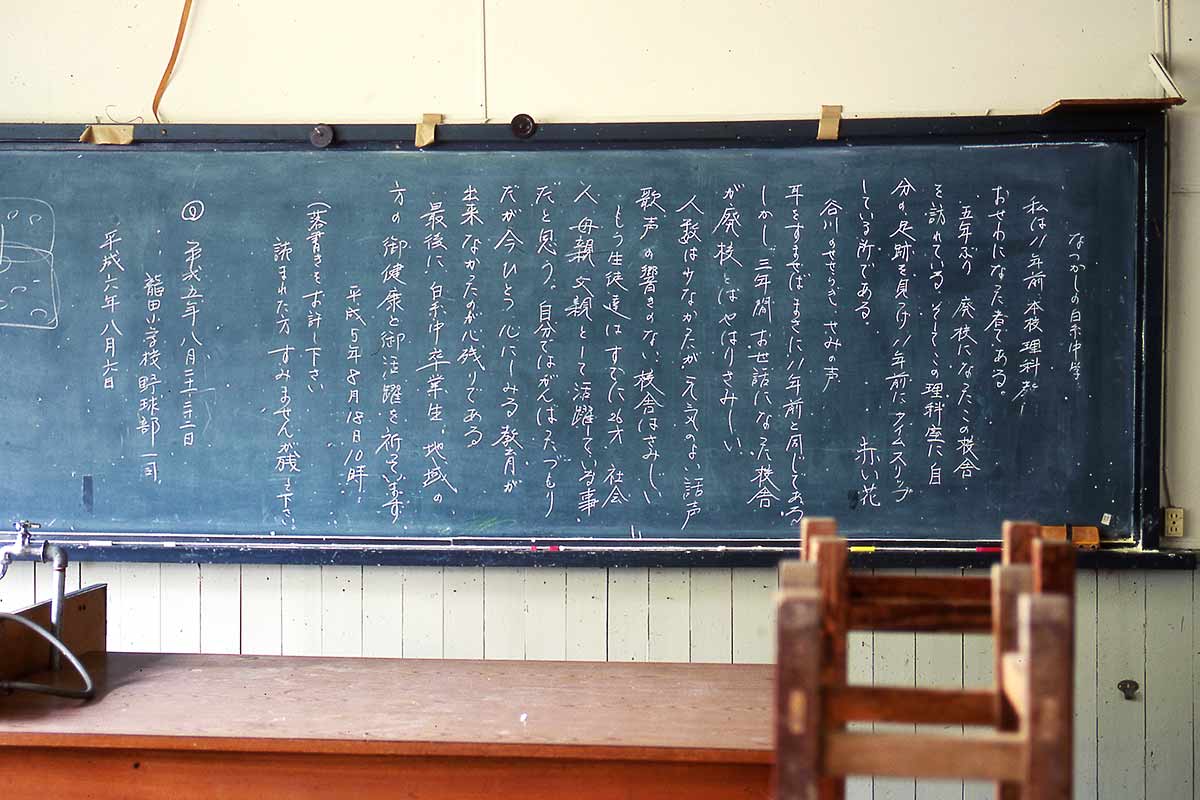 なつかしの白糸中学
私は11年前 本校理科教師
おせわになった者である。
五年ぶり 廃校になったこの校舎
を訪れている そしてこの理科室に自
分の足跡を見つけ 11年前にタイムスリップ
している所である。
谷川のせせらぎ、せみの声 赤い花
耳をすませばまさに11年前と同じである
しかし 三年間お世話になった校舎
が廃校とはやはりさみしい
人数は少なかったが元気のよい話声
歌声の響きのない校舎はさみしい
もう生徒達はすでに26才 社会
人 母親 父親として活躍している事
だと思う。自分ではがんばったつもり
だが今ひとつ心にしみる教育が
出来なかったのが心残りである
最後に 白糸中卒業生、地域の
方の御健康と御活躍を祈っています
平成5年8月18日10時
(落書きをお許し下さい
読まれた方すみませんが残して下さい。
平成五年八月二十二日
龍田小学校野球部一同
平成六年八月六日